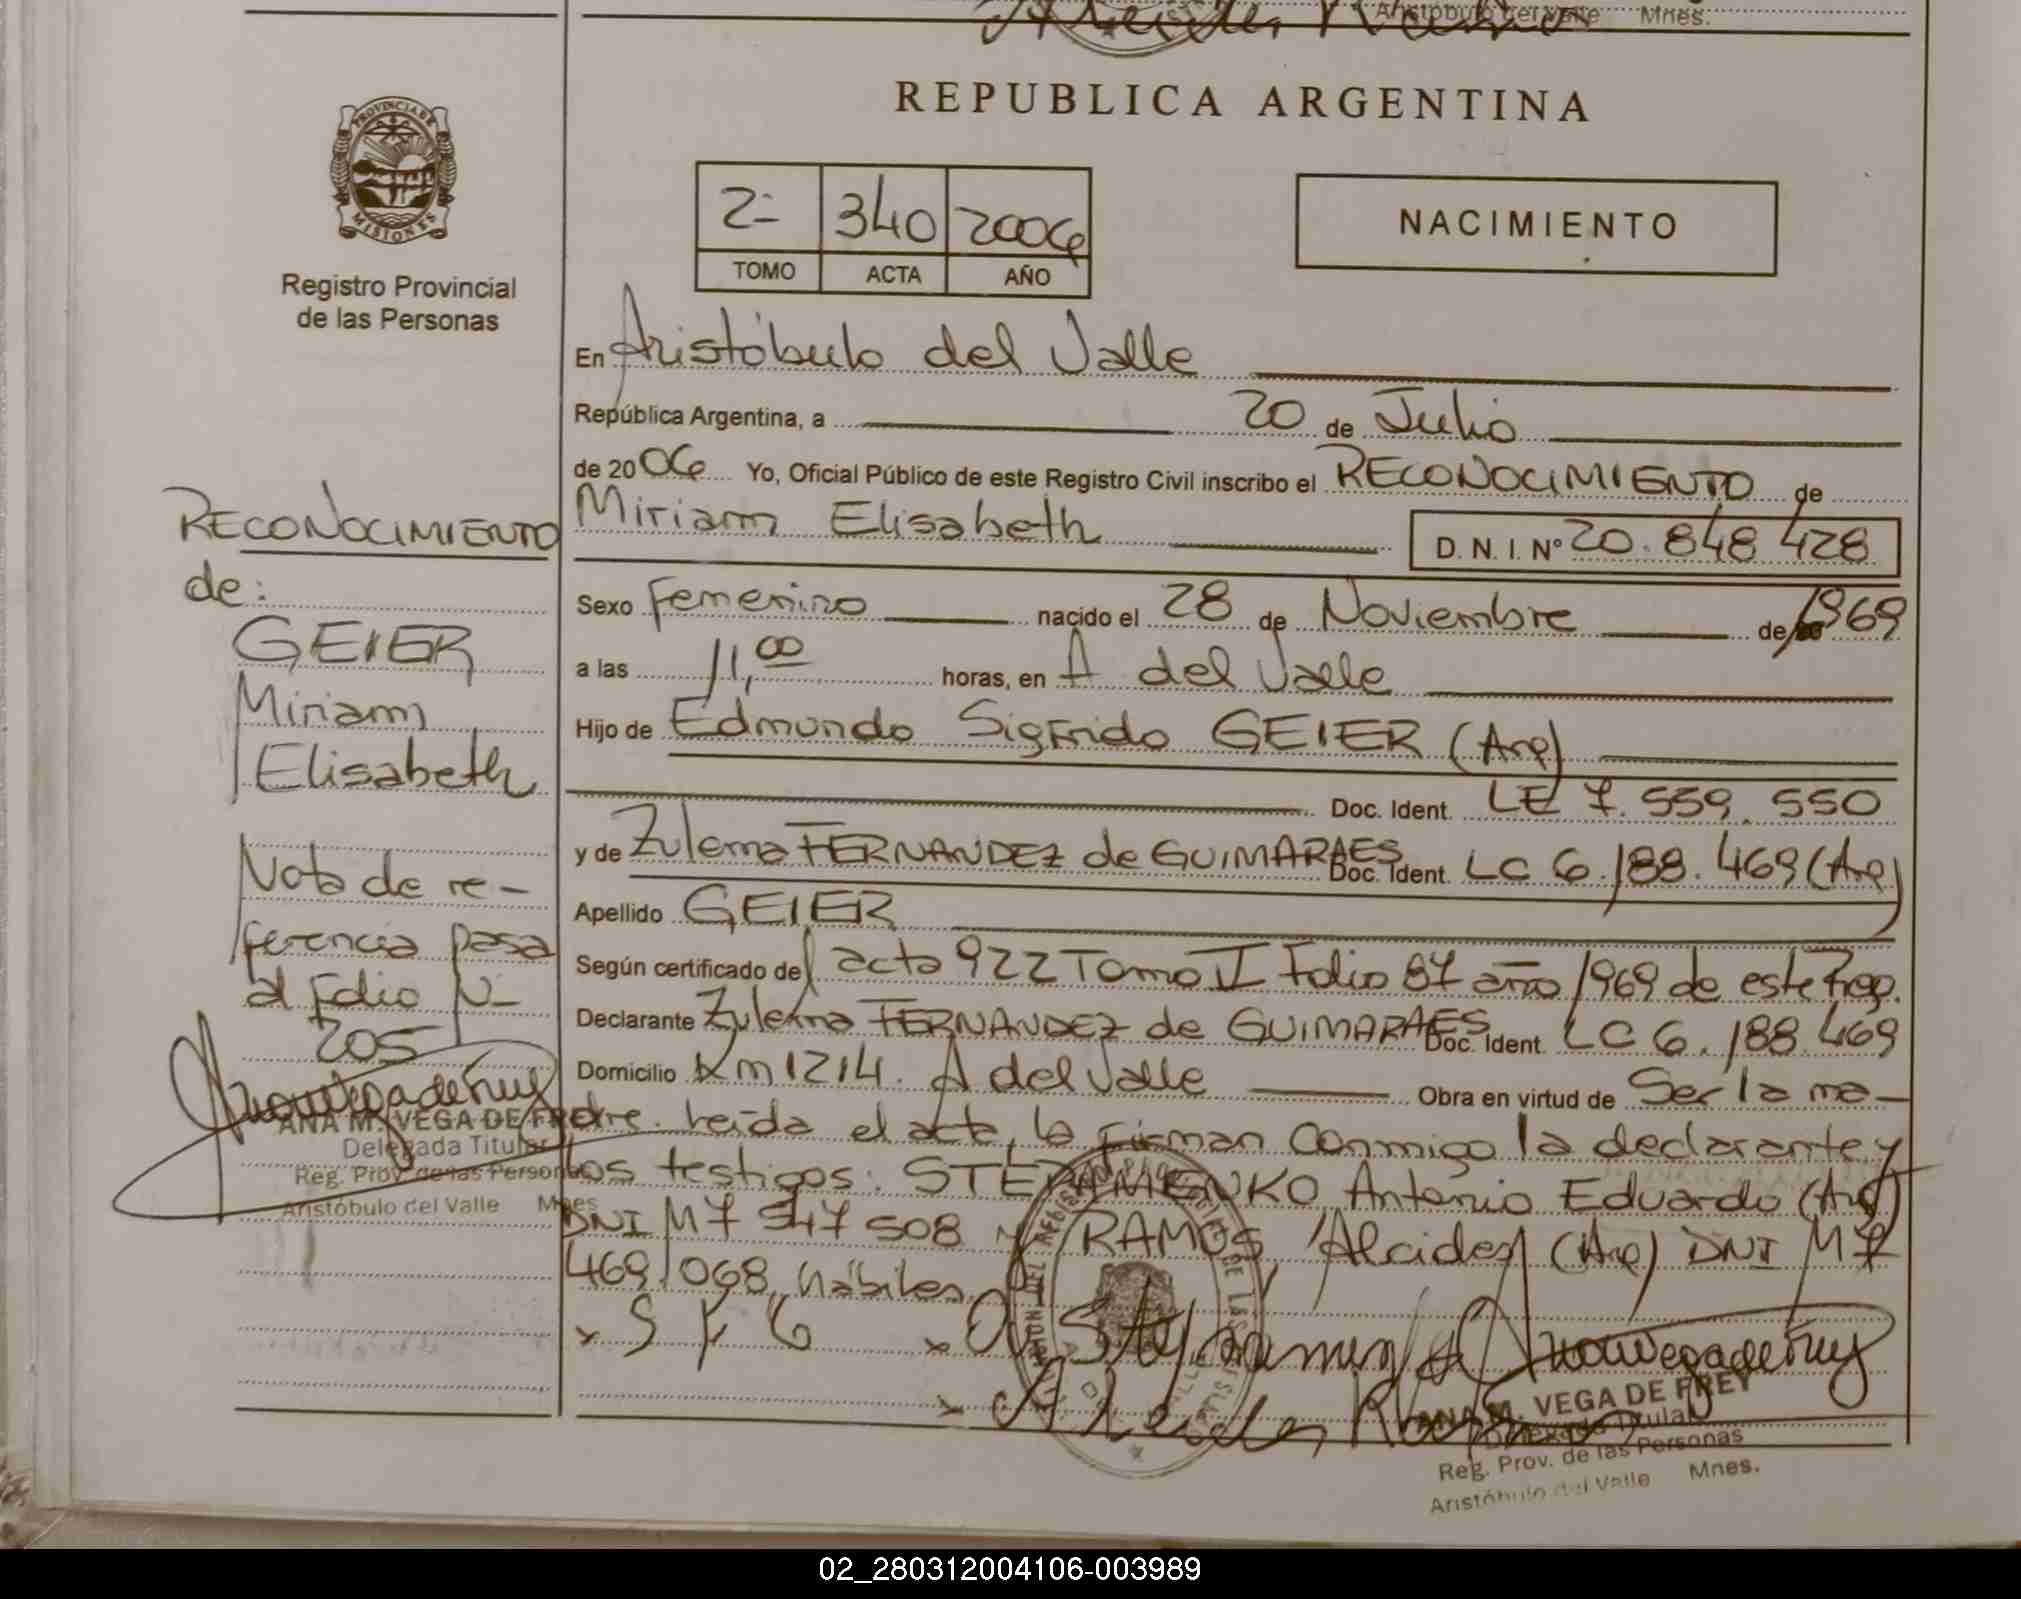 Aristóbulo del Valle Mnes.
REPUBLICA ARGENTINA
PROVINCIA DE
MISIONES
Registro Provincial
de las Personas
2- 340 2006
TOMO ACTA AÑO
NACIMIENTO
En Aristóbulo del Valle
República Argentina, a 20 de Julio
de 20 06 Yo, Oficial Público de este Registro Civil inscribo el RECONOCIMIENTO de
Miriam Elisabeth D. N. I. Nº 20.848.428
Sexo Femenino nacido el 28 de Noviembre de 1969
a las 11,00 horas, en A del Valle
Hijo de Edmundo Sigfrido GEIER (Arg)
Doc. Ident. LE 7.559.550
y de Zulema FERNANDEZ de GUIMARAES Doc. Ident. LC 6.188.469 (Arg)
Apellido GEIER
Según certificado del acta 922 Tomo V Folio 87 año 1969 de este Reg.
Declarante Zulema FERNANDEZ de GUIMARAES Doc. Ident. LC 6.188.469
Domicilio Km 1214. A del Valle Obra en virtud de Ser la ma-
dre. Leida el acta, la firman conmigo la declarante y
los testigos: STEPAMENKO, Antonio Eduardo (Arg)
DNI M7 547 508 y RAMOS Alcides (Arg) DNI M7
469.068, hábiles.
RECONOCIMIENTO
de:
GEIER
Miriam
Elisabeth
Nota de re-
ferencia pasa
al Folio N-
205
ANA M. VEGA DE FREY
Delegada Titular
Reg. Prov. de las Personas
Aristóbulo del Valle Mnes
ANA M. VEGA DE FREY
Delegada Titular
Reg. Prov. de las Personas
Aristóbulo del Valle Mnes.
02_280312004106-003989